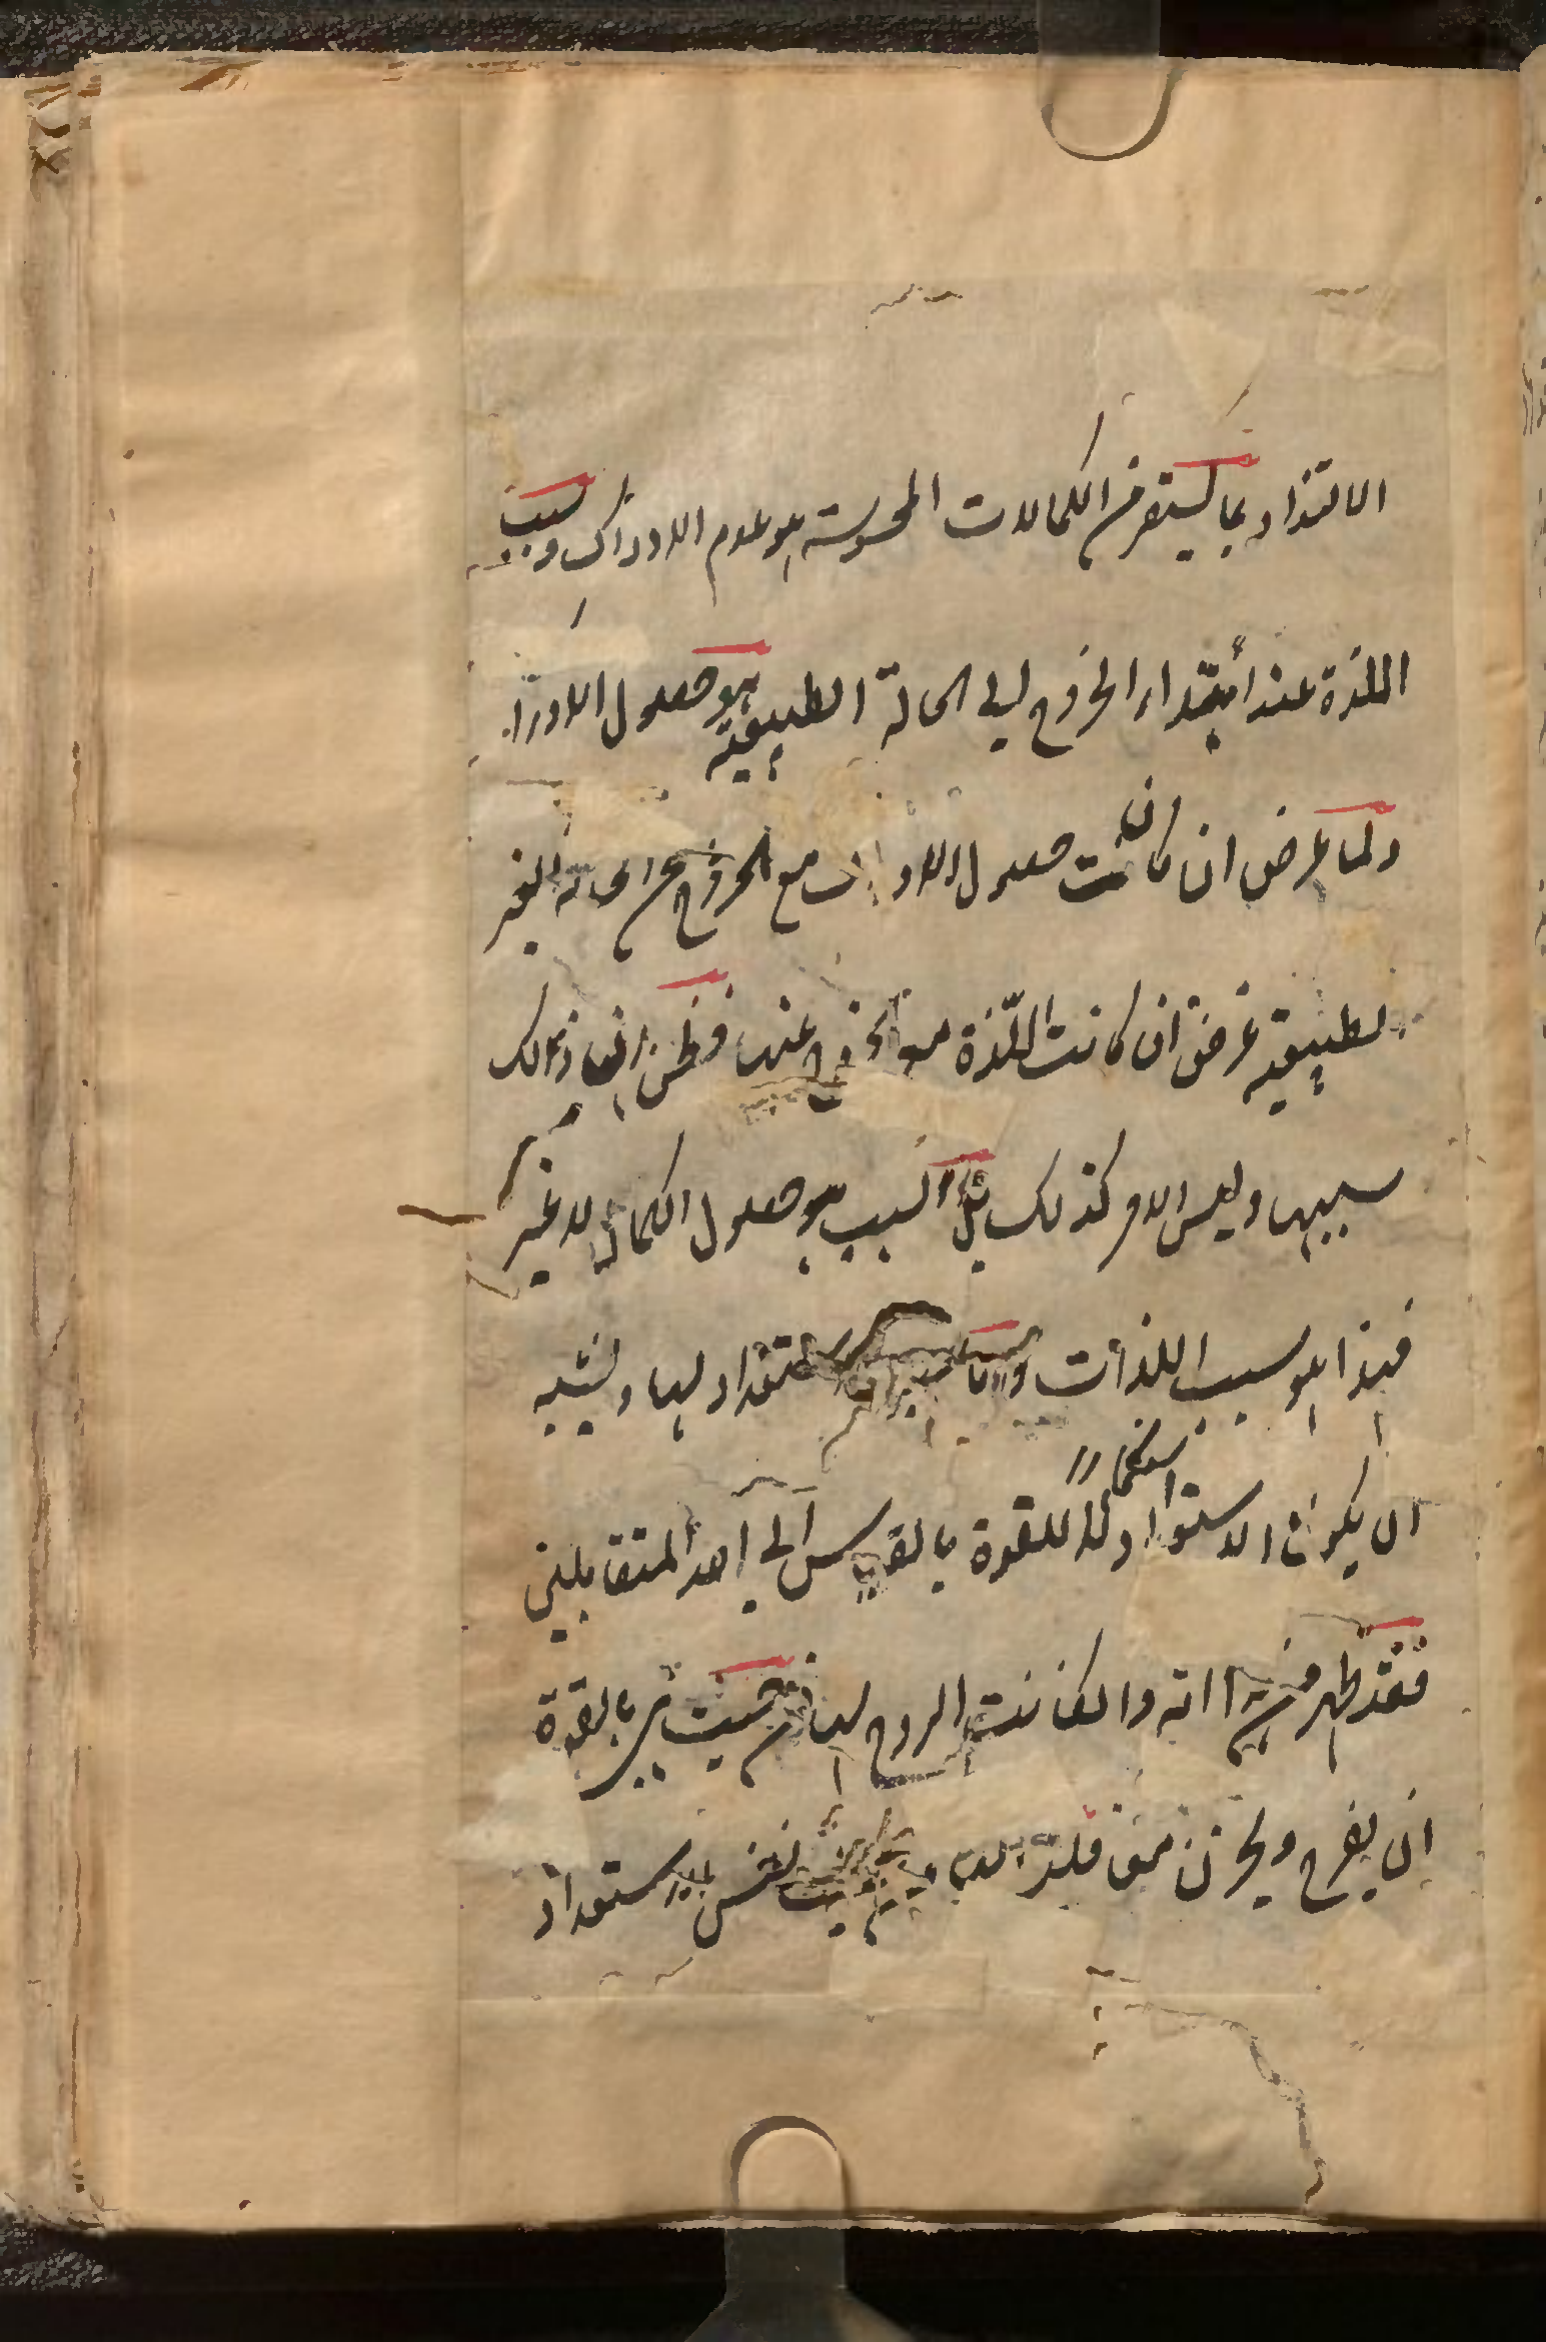 الالتذاذ بما يستقر من الكمالات المحسوسة هو عدم الادراك وسبب
اللذة عند أبتداء الخروج الى الحالة الطبيعية هو حصول الادراك
ولما عرض ان كان حصول الادراك مع الخروج عن الحالة الغير
الطبيعية عرض ان كانت اللذة مع الخروج عنها فظن ان ذالك
سببها وليس الامر كذلك بل السبب هو حصول الكمال لا غير
فهذا هو سبب اللذات واما الاستعداد لها ويشبه
ان يكون الاستعداد استكمالا للقوة بالقياس الى احد المتقابلين
فقد ظهر من هذا انه وان كانت الروح لها من حيث هي بالقوة
ان يفرح ويحزن فليس لها من حيث نفس الاستعداد